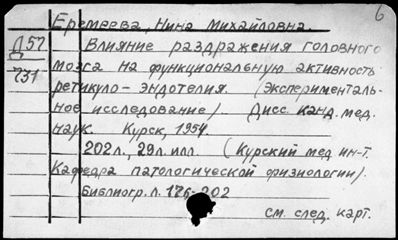 6
Еремеева, Нина Михайловна.
Д 57
731
Влияние раздражения головного
мозга на функциональную активность
ретикуло-эндотелия. (Эксперименталь-
ное исследование/ Дисс. канд. мед.
наук. Курск, 1954.
202л., 29л. илл. (Курский мед ин-т.
Кафедра патологической физиологии/.
Библиогр. л. 176-202
см. след. карт.